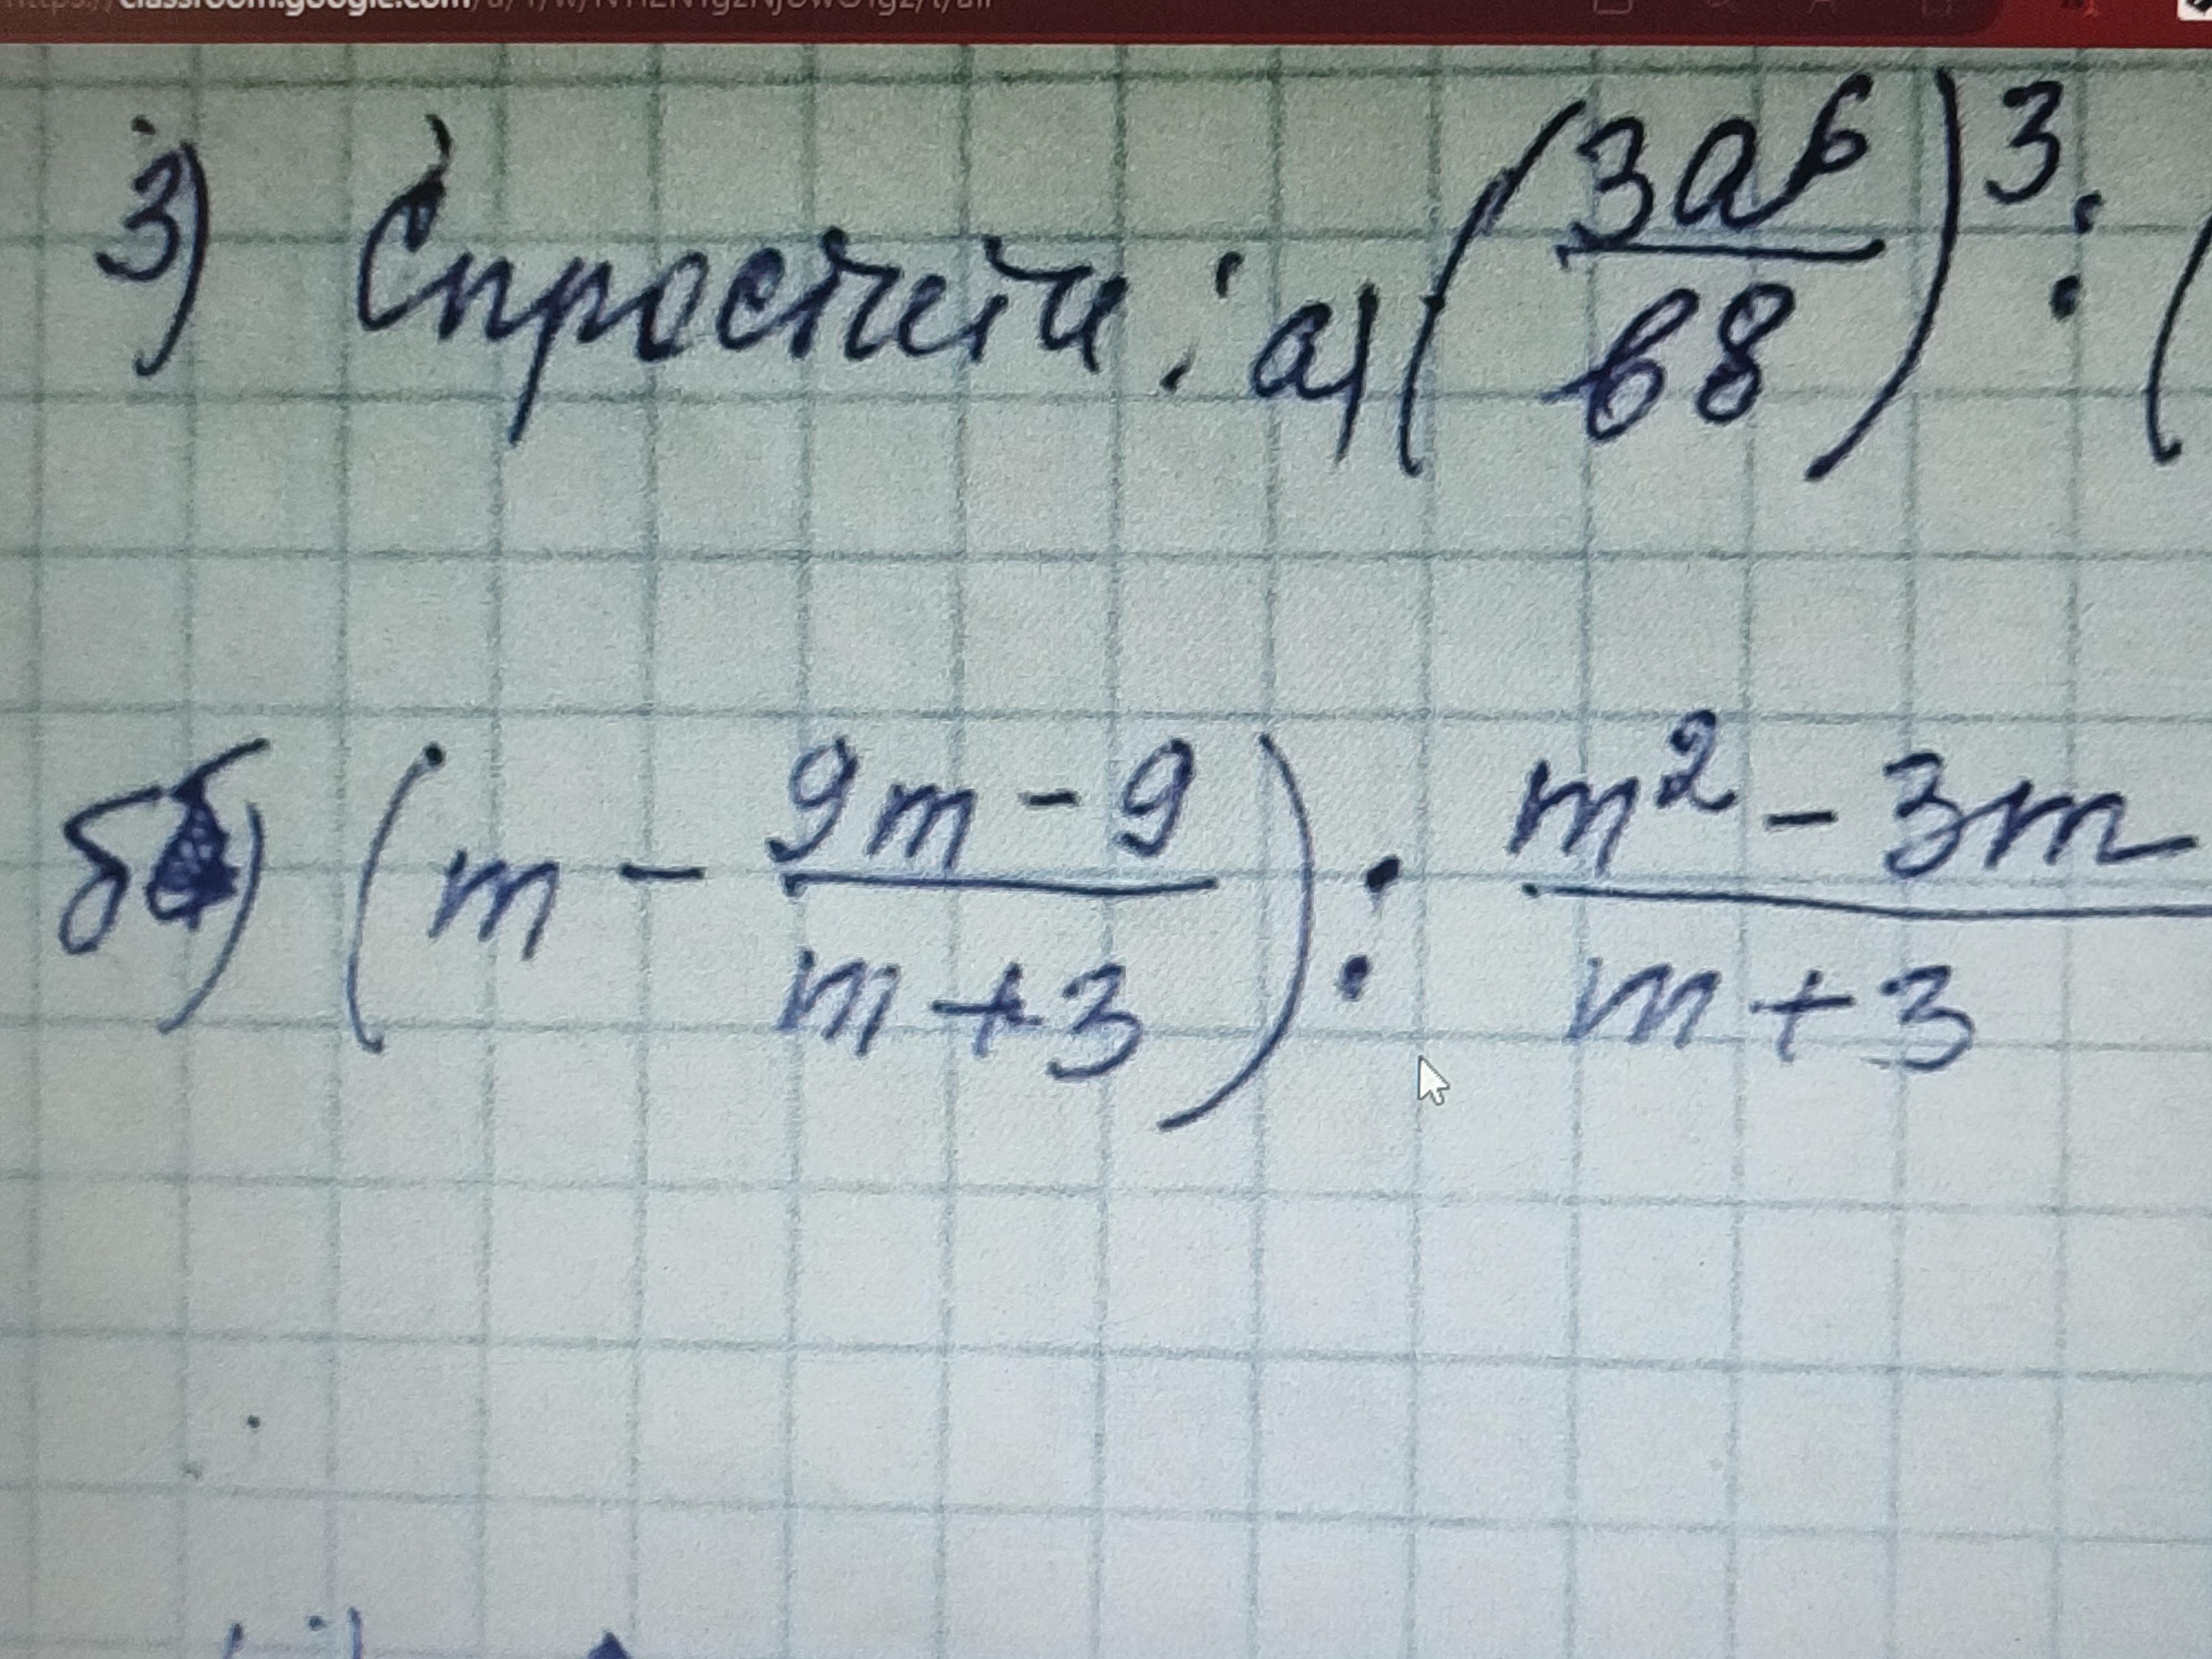 classroom.google.com
3) Спростити: а) (3a⁶/b8)³ : (
б) (m - 9m - 9/m + 3) : m² - 3m/m + 3